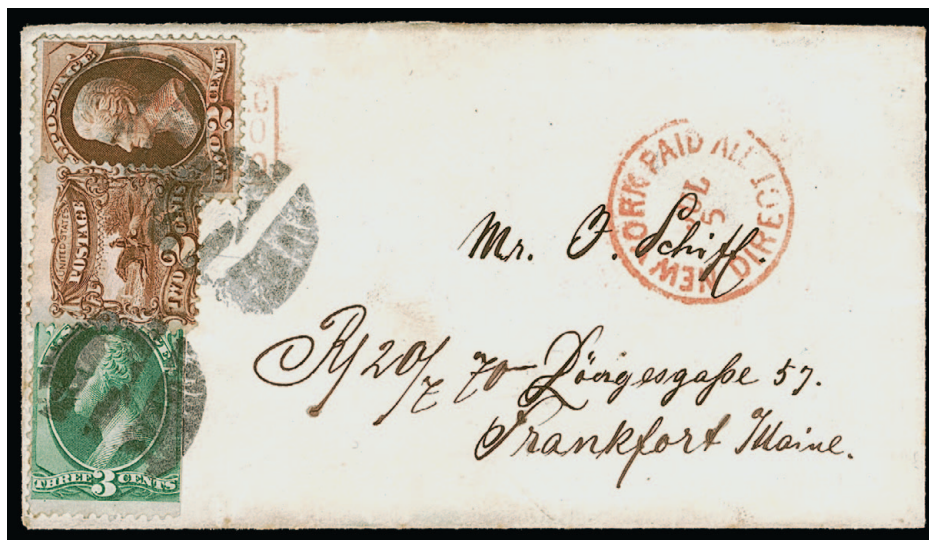 U.S. POSTAGE
TWO 2 CENTS
UNITED STATES
POSTAGE
TWO 2 CENTS
THREE 3 CENTS
NEW YORK PAID ALL DIRECT
JUL
5
Mr. O. Schiff.
20/7 70
Döngesgaße 57.
Frankfort Maine.